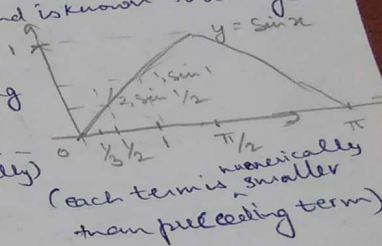 nd is known
y = sin x
1
1, sin 1
1/2, sin 1/2
0 1/3 1/2 1 π/2 π
(each term is numerically smaller
than preceeding term)